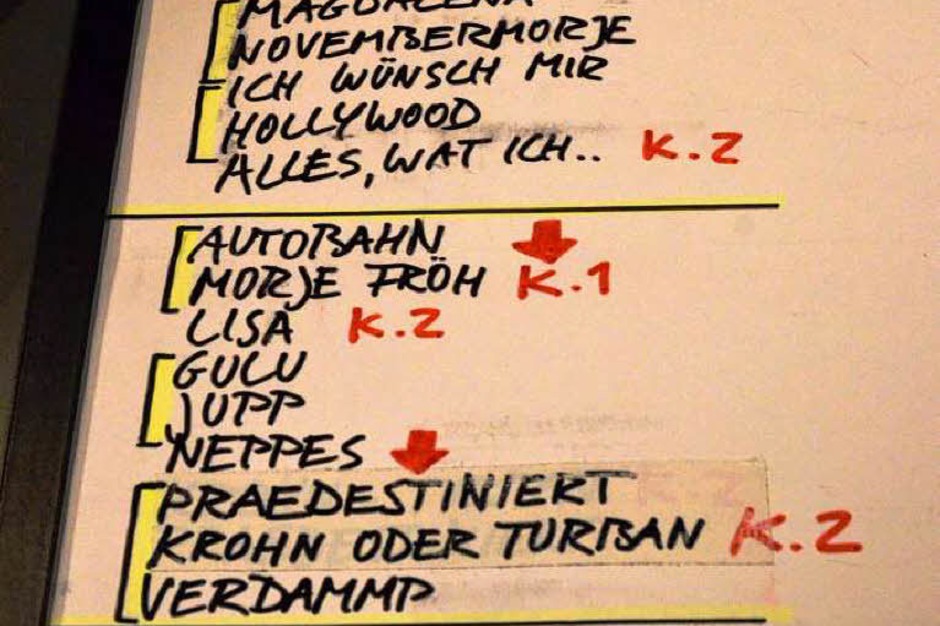 MAGDALENA
NOVEMBERMORJE
ICH WÜNSCH MIR
HOLLYWOOD
ALLES, WAT ICH.. K.2
AUTOBAHN
MORJE FRÖH K.1
LISA K.2
GULU
JUPP
NEPPES
PRAEDESTINIERT K.2
KROHN ODER TURBAN K.2
VERDAMMP